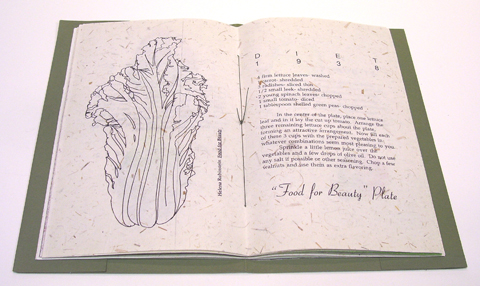 Helena Rubinstein Food for Beauty
D I E T
1 9 3 8
4 firm lettuce leaves- washed
1 carrot- shredded
2 radishes- sliced thin
1/2 small leek- shredded
2 young spinach leaves- chopped
1 small tomato- diced
1 tablespoon shelled green peas- chopped
In the centre of the plate, place one lettuce
leaf and in it lay the cut up tomato. Arrange the
three remaining lettuce cups about the plate,
forming an attractive arrangement. Now fill each
of these 3 cups with the prepared vegetables in
whatever combinations seem most pleasing to you.
Sprinkle a little lemon juice over the
vegetables and a few drops of olive oil. Do not use
any salt if possible or other seasoning. Chop a few
walnuts and use them as extra flavoring.
"Food for Beauty" Plate